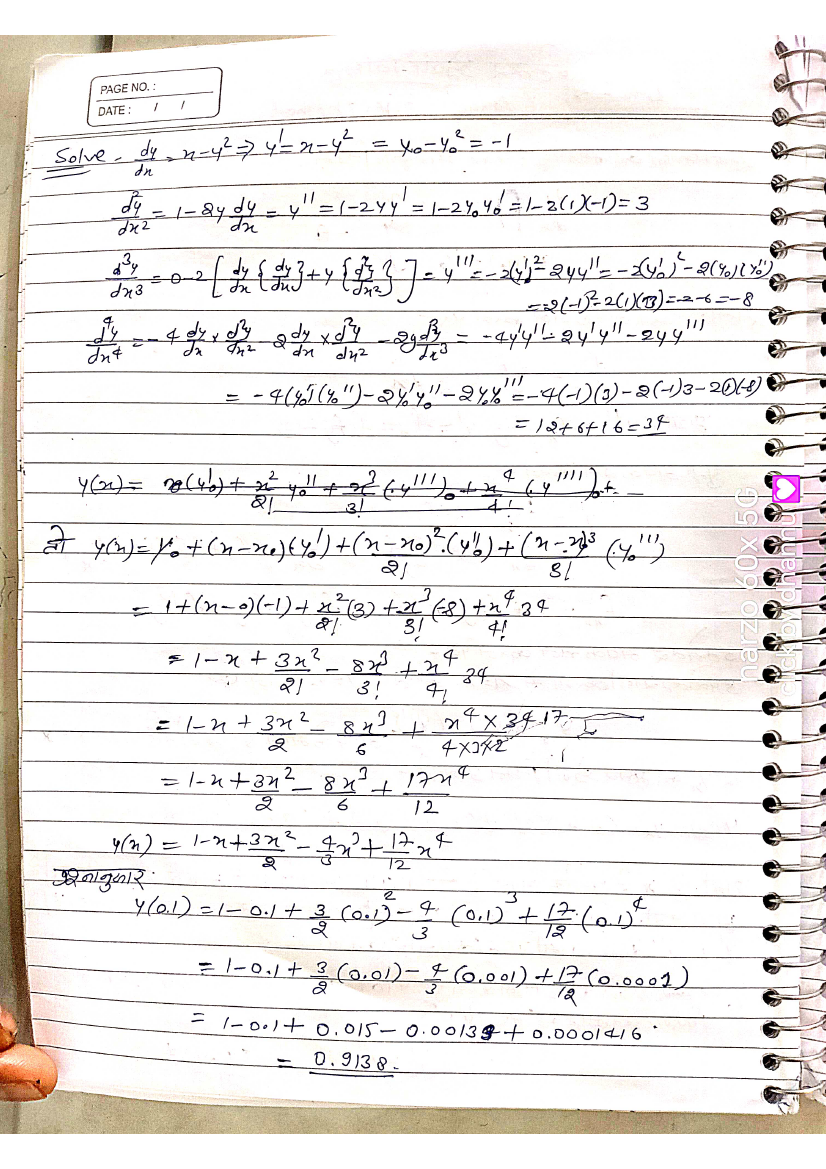 PAGE NO. :
DATE : / /
Solve - dy/dx = x-y² ⇒ y' = x-y² = x₀-y₀² = -1
d²y/dx² = 1-2y dy/dx = y'' = 1-2yy' = 1-2y₀y₀' = 1-2(1)(-1) = 3
d³y/dx³ = 0-2[dy/dx{dy/dx}+y{d²y/dx²}] = y''' = -2(y')²-2yy'' = -2(y₀')²-2(y₀)(y₀'')
= -2(-1)²-2(1)(3) = -2-6 = -8
d⁴y/dx⁴ = -4 dy/dx × d²y/dx² - 2 dy/dx × d²y/dx² - 2y d³y/dx³ = -4y'y''-2y'y''-2yy'''
= -4(y₀')(y₀'')-2y₀'y₀''-2y₀y₀''' = -4(-1)(3)-2(-1)3-2(1)(-8)
= 12+6+16 = 34
y(x) = x(y'₀) + x²/2! y₀'' + x³/3! (y''')₀ + x⁴/4! (y'''')₀ + - -
तो y(x) = y₀ + (x-x₀)(y₀') + (x-x₀)²/2! (y₀'') + (x-x₀)³/3! (y₀''')
= 1+(x-0)(-1) + x²/2! (3) + x³/3! (-8) + x⁴/4! 34
= 1-x + 3x²/2! - 8x³/3! + x⁴/4! 34
= 1-x + 3x²/2 - 8x³/6 + x⁴×34 17/4×3×2
= 1-x + 3x²/2 - 8x³/6 + 17x⁴/12
y(x) = 1-x+3x²/2 - 4/3 x³ + 17/12 x⁴
y(0.1) = 1-0.1 + 3/2 (0.1)² - 4/3 (0.1)³ + 17/12 (0.1)⁴
= 1-0.1 + 3/2 (0.01) - 4/3 (0.001) + 17/12 (0.0001)
= 1-0.1 + 0.015 - 0.00133 + 0.0001416
= 0.9138.
narzo 60x 5G
click by dhannu